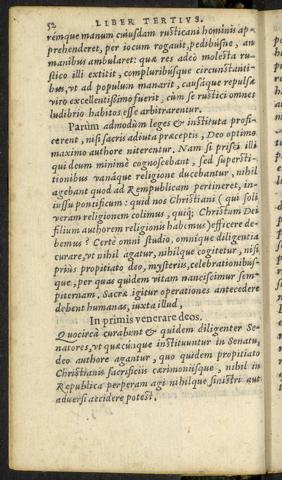 52 LIBER TERTIVS.
remque manum cuiusdam rusticani hominis ap-
prehenderet, per iocum rogauit, pedibúsne, an
manibus ambularet: quæ res adeò molesta ru-
stico illi extitit, compluribúsque circunstanti-
bus, vt ad populum manarit, causáque repulsæ
viro excellentissimo fuerit, cùm se rustici omnes
ludibrio habitos esse arbitrarentur.
Parùm admodùm leges & instituta profi-
cerent, nisi sacris adiuta præceptis, Deo optimo
maximo authore niterentur. Nam si prisci illi
qui deum minimè cognoscebant, sed supersti-
tionibus vanáque religione ducebantur, nihil
agebant quod ad Rempublicam pertineret, in-
iussu pontificum: quid nos Christiani (qui soli
veram religionem colimus, quiq; Christum Dei
filium authorem religionis habemus) efficere de-
bemus? Certè omni studio, omnique diligentia
curare, vt nihil agatur, nihilque cogitetur, nisi
priùs propitiato deo, mysteriis, celebrationibús-
que, per quas quidem vitam nanciscimur sem-
piternam. Sacræ igitur operationes antecedere
debent humanas, iuxta illud,
In primis venerare deos.
Quocircà curabunt & quidem diligenter Se-
natores, vt quæcùnque instituuntur in Senatu,
deo authore agantur, quo quidem propitiato
Christianis sacrificiis cærimoniísque, nihil in
Republica perperam agi nihilque sinistri aut
aduersi accidere potest.